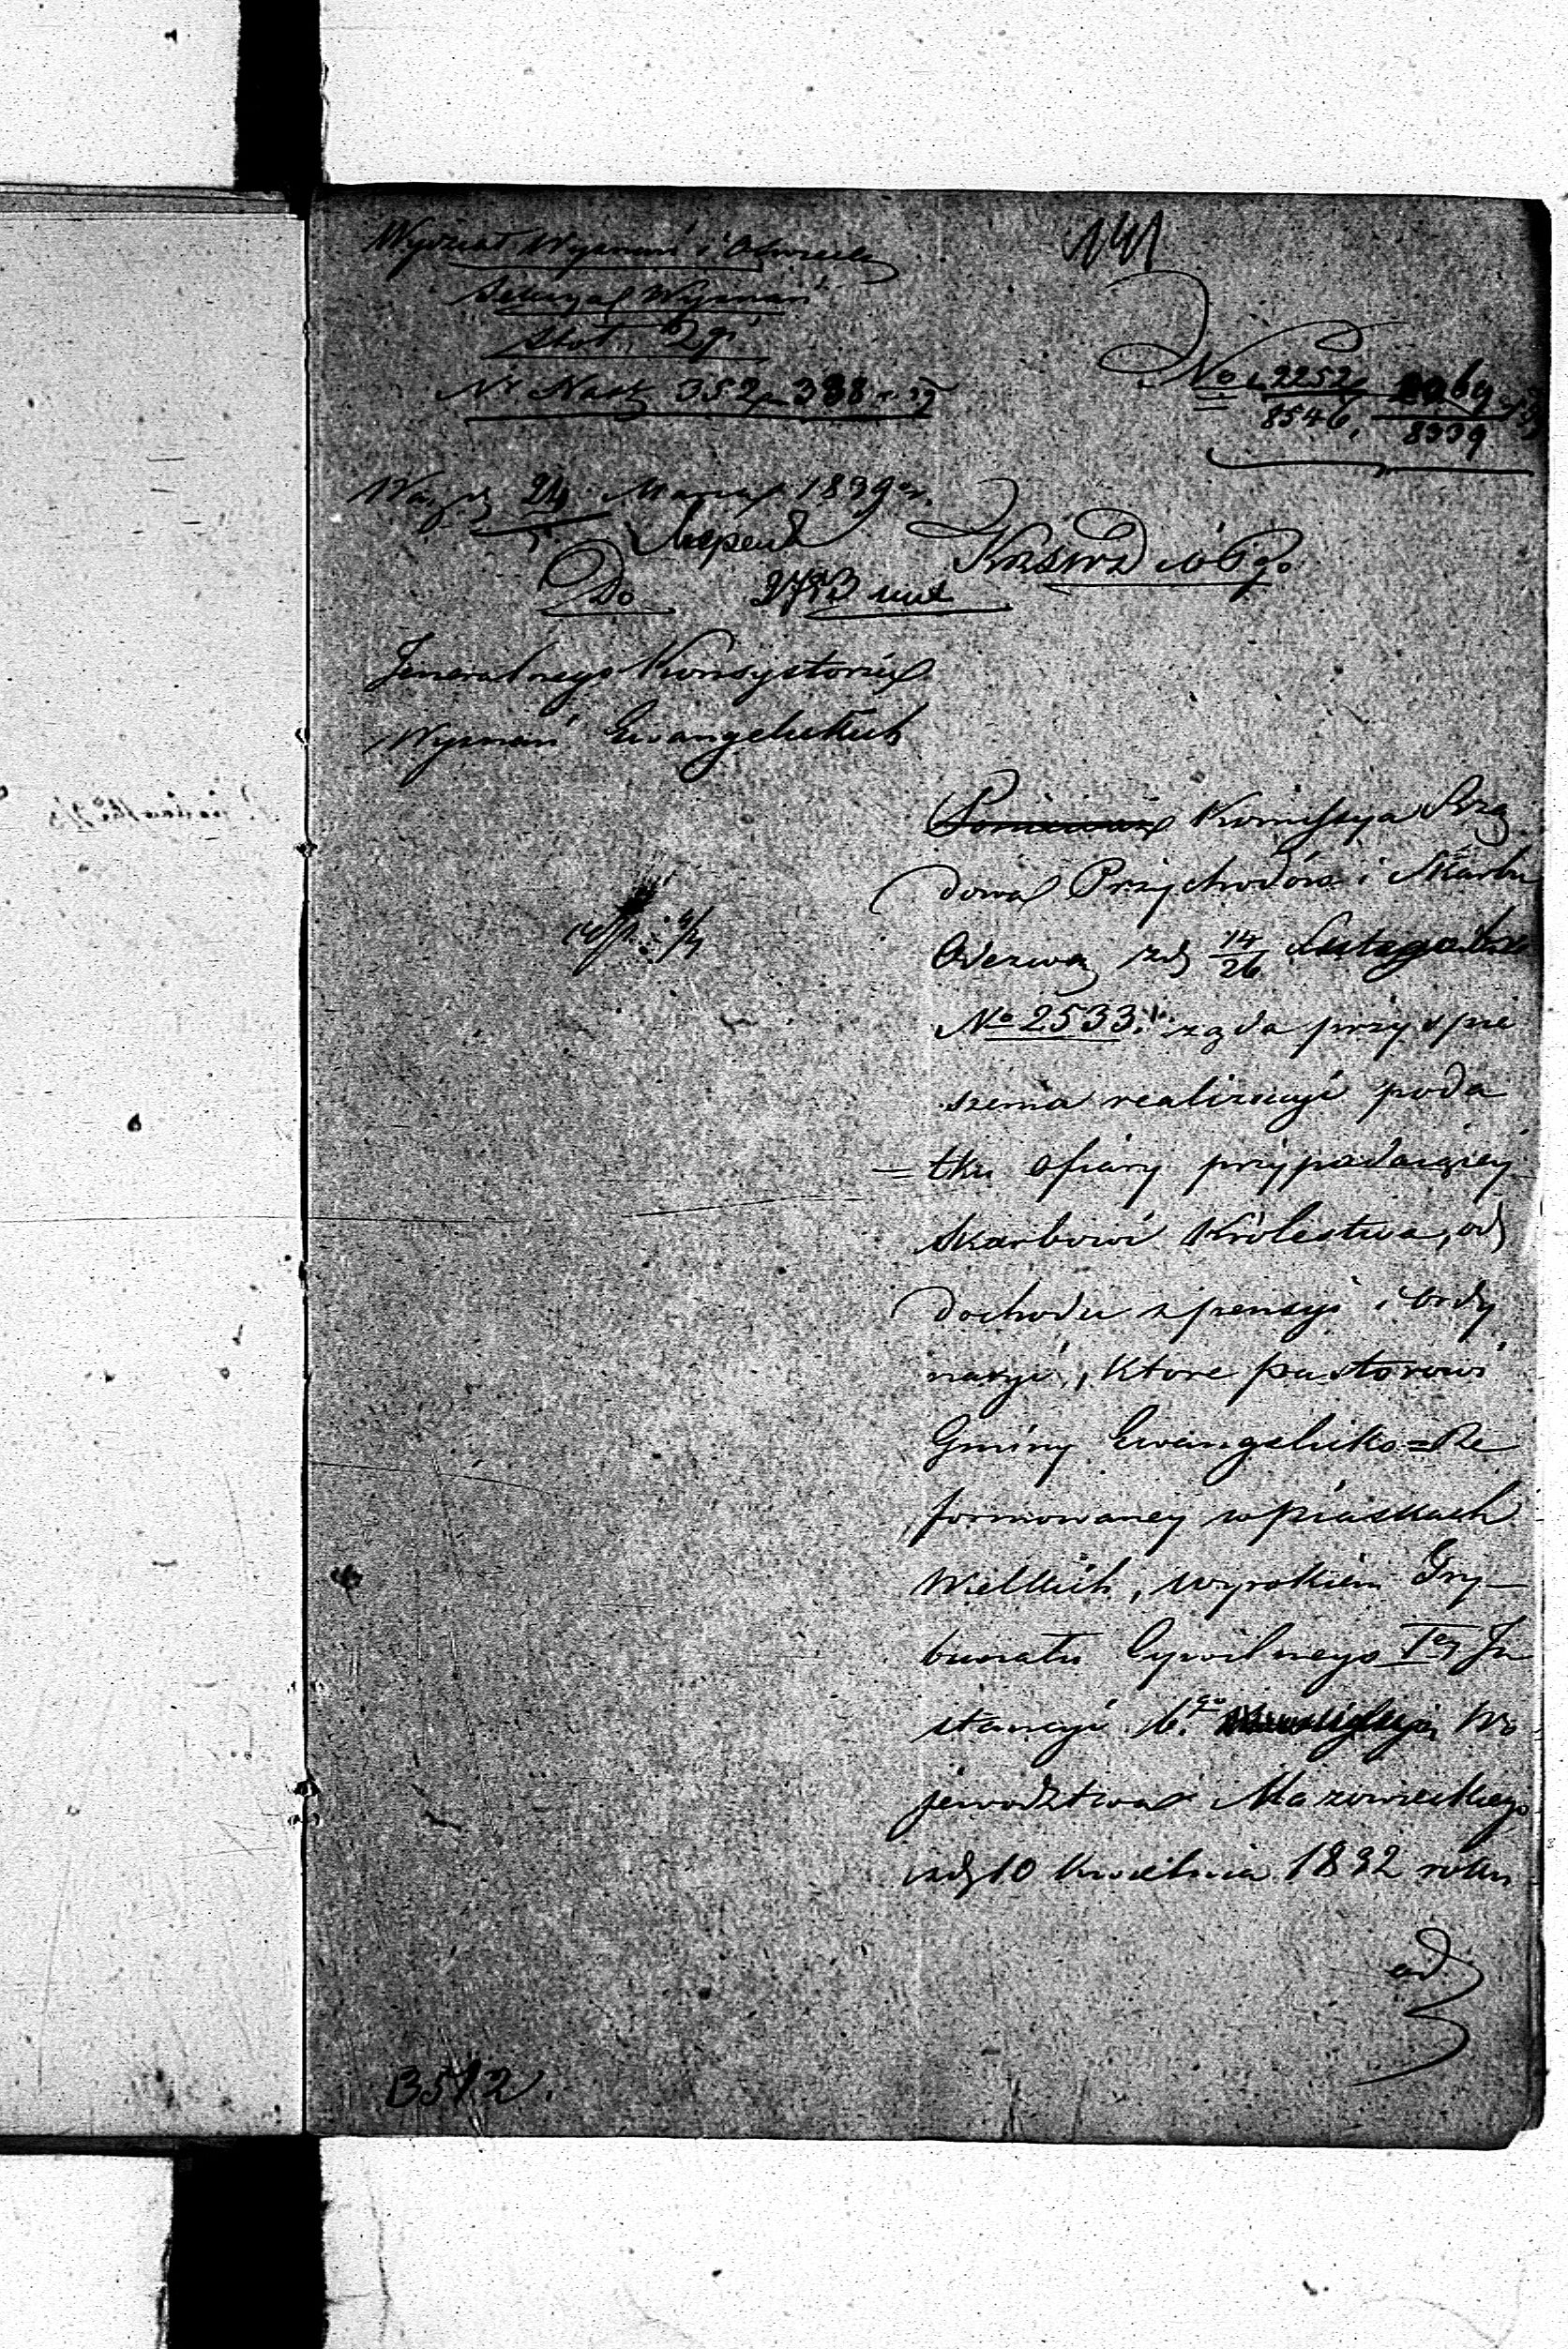 141
Wydział Wyznań i Oświece
Sekcya Wyznań
Stół 2gi
Nr Nast 352 388
No 2252
8546, 8339
24 Marca 1839 r.
Do
KRSWD i OPgo
Jeneralnego Konsystorza
Wyznań Ewangelickich
Ponieważ Komissya Rzą
dowa Przychodów i Skarbu
Odezwą z d 14/26 Lutego
No 2533. żąda przyspie
szenia realizacyi poda
= tku ofiary przypadaiącey
Skarbowi Królestwa, od
dochodu z pensyi i Ordy
naryi, które pastorowi
Gminy Ewangelicko=Re
formowaney w Piaskach
Wielkich, wyrokiem Try-
bunału Cywilnego Iey In
stancyi b.go Wo
jewództwa Mazowieckiego
z d 10 Kwietnia 1832 roku
od
3512.